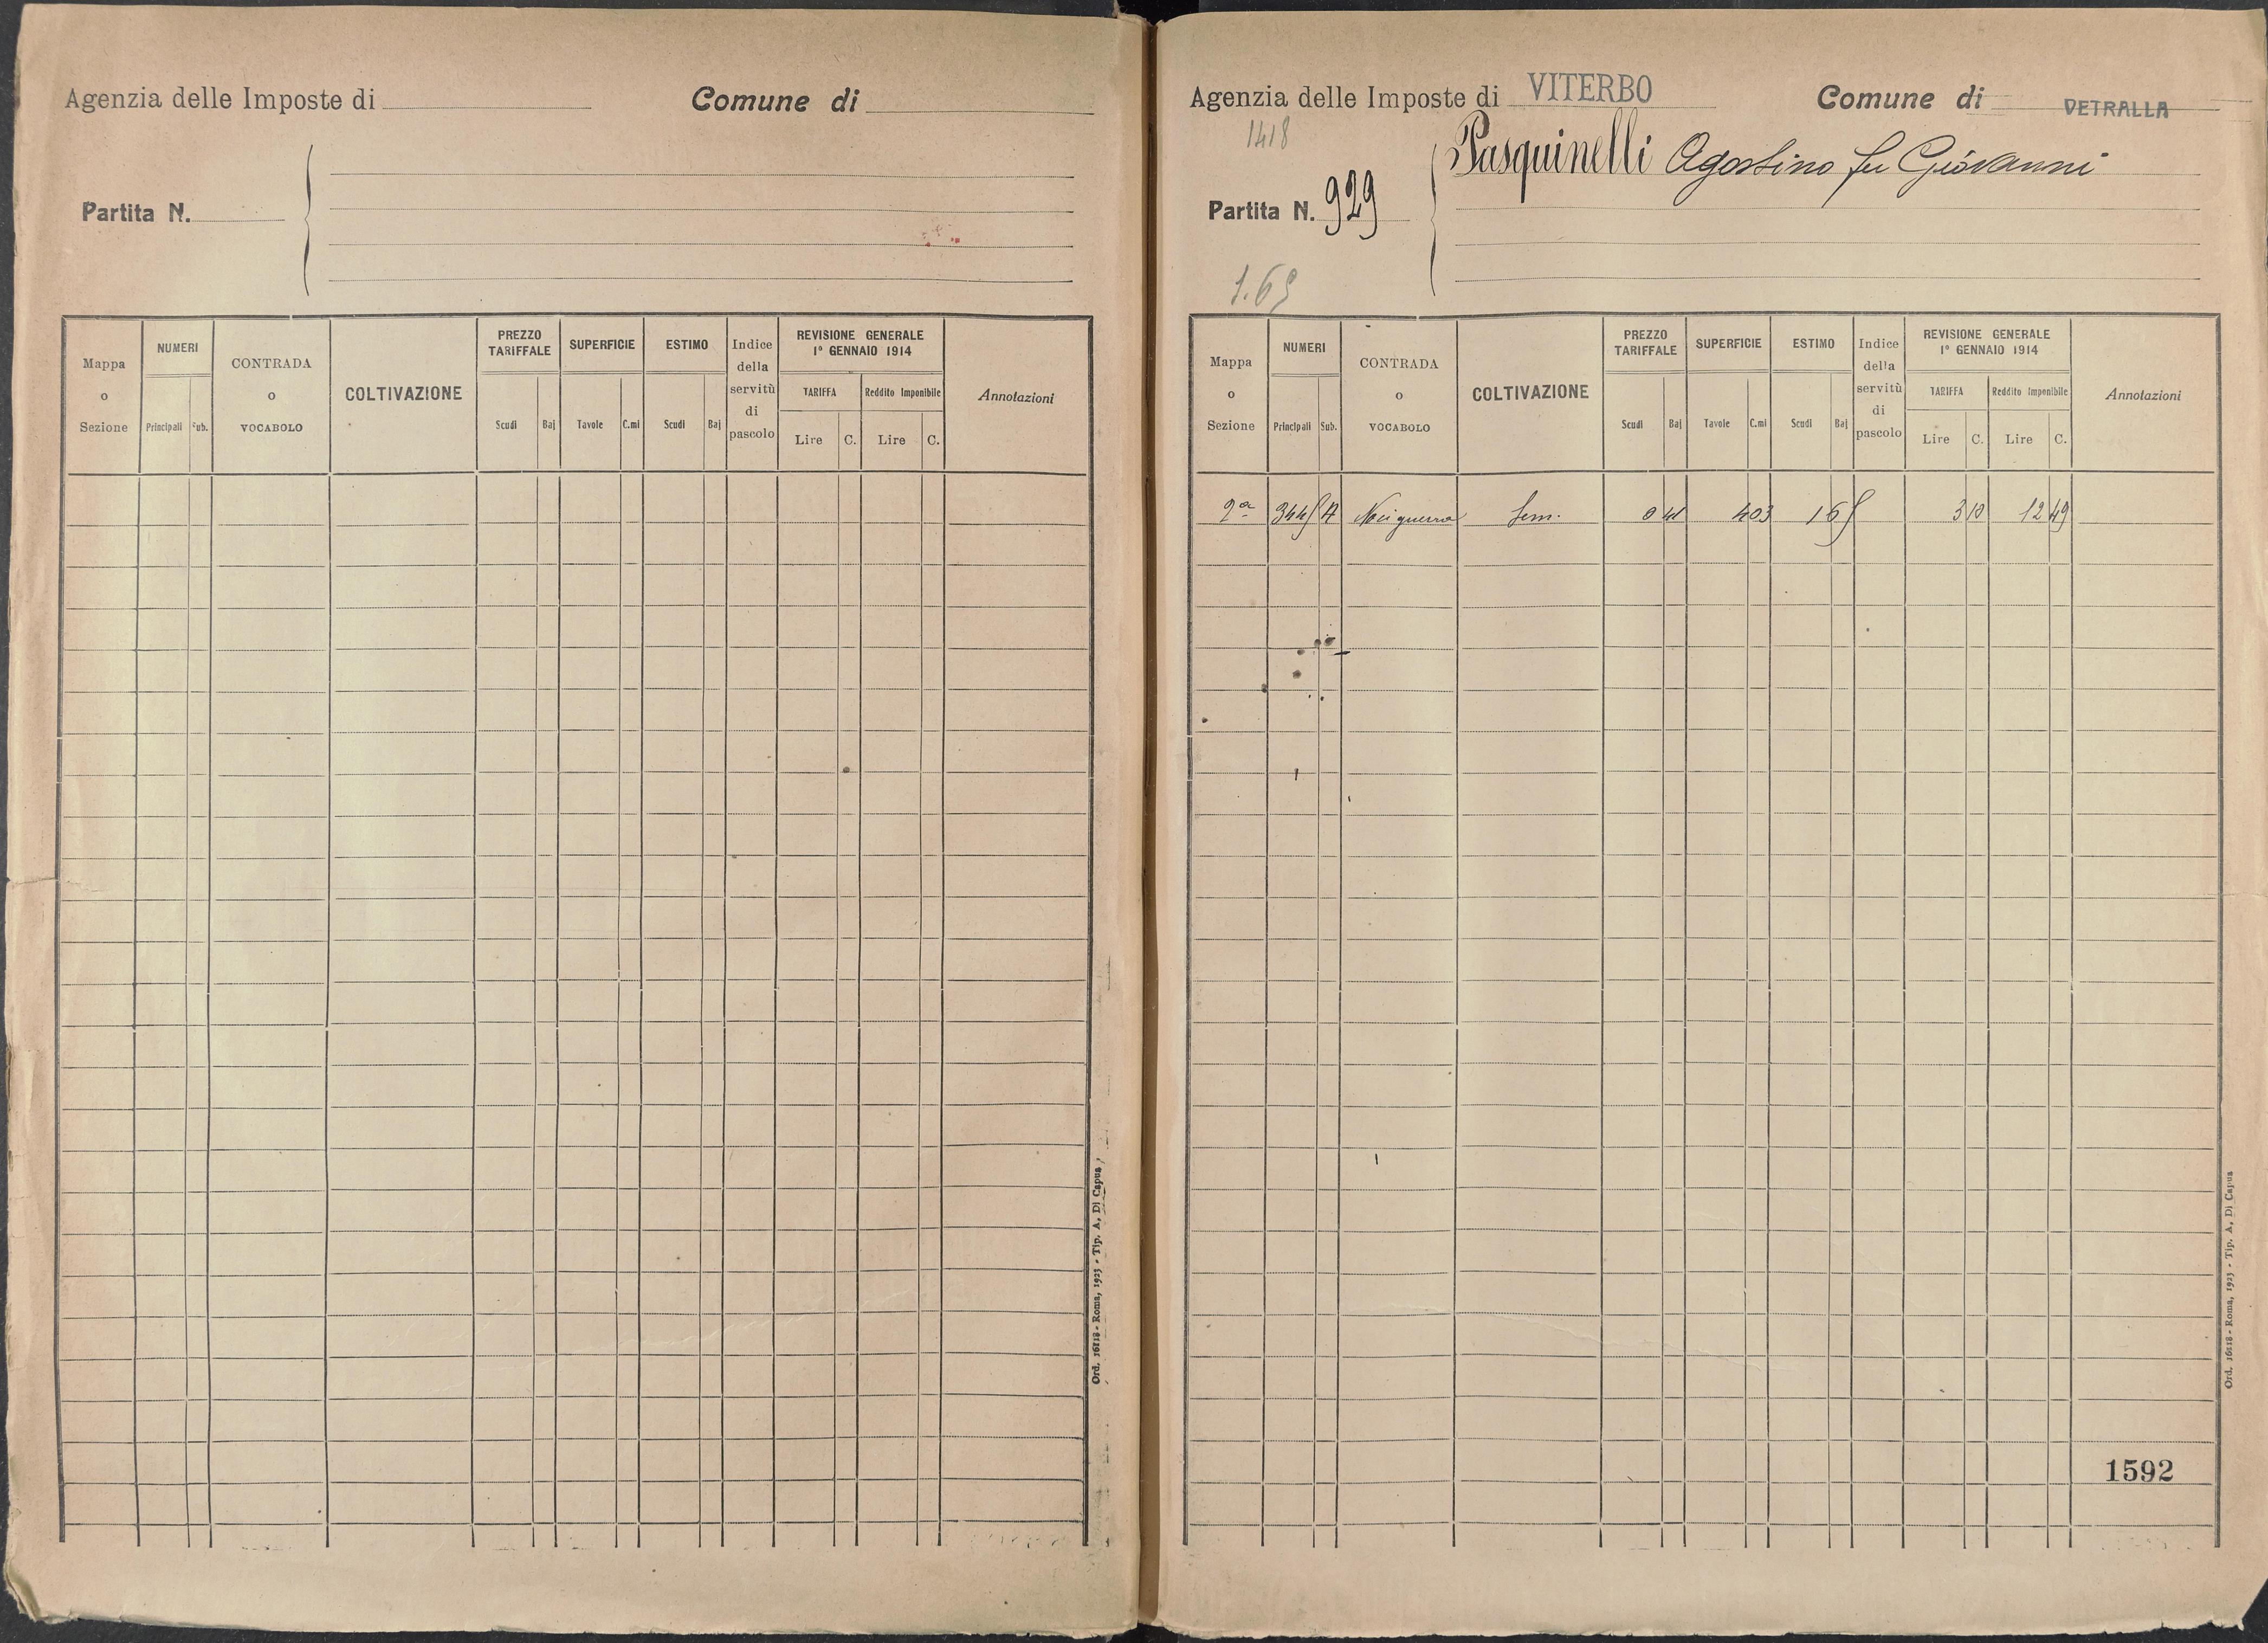 Agenzia delle Imposte di
Comune di
Partita N.
Mappa o Sezione
NUMERI
Principali
Sub.
CONTRADA o VOCABOLO
COLTIVAZIONE
PREZZO TARIFFALE
Scudi
Baj
SUPERFICIE
Tavole
C.mi
ESTIMO
Scudi
Baj
Indice della servitù di pascolo
REVISIONE GENERALE
1° GENNAIO 1914
TARIFFA
Lire
C.
Reddito Imponibile
Lire
C.
Annotazioni
Ord. 16118 - Roma, 1923 - Tip. A. Di Capua
Agenzia delle Imposte di VITERBO
Comune di VETRALLA
1418
Pasquinelli Agostino fu Giovanni
Partita N. 929
1.65
Mappa o Sezione
NUMERI
Principali
Sub.
CONTRADA o VOCABOLO
COLTIVAZIONE
PREZZO TARIFFALE
Scudi
Baj
SUPERFICIE
Tavole
C.mi
ESTIMO
Scudi
Baj
Indice della servitù di pascolo
REVISIONE GENERALE
1° GENNAIO 1914
TARIFFA
Lire
C.
Reddito Imponibile
Lire
C.
Annotazioni
2a Sem. 0 41 4 03 1 65 3 10 12 49
1592
Ord. 16118 - Roma, 1923 - Tip. A. Di Capua